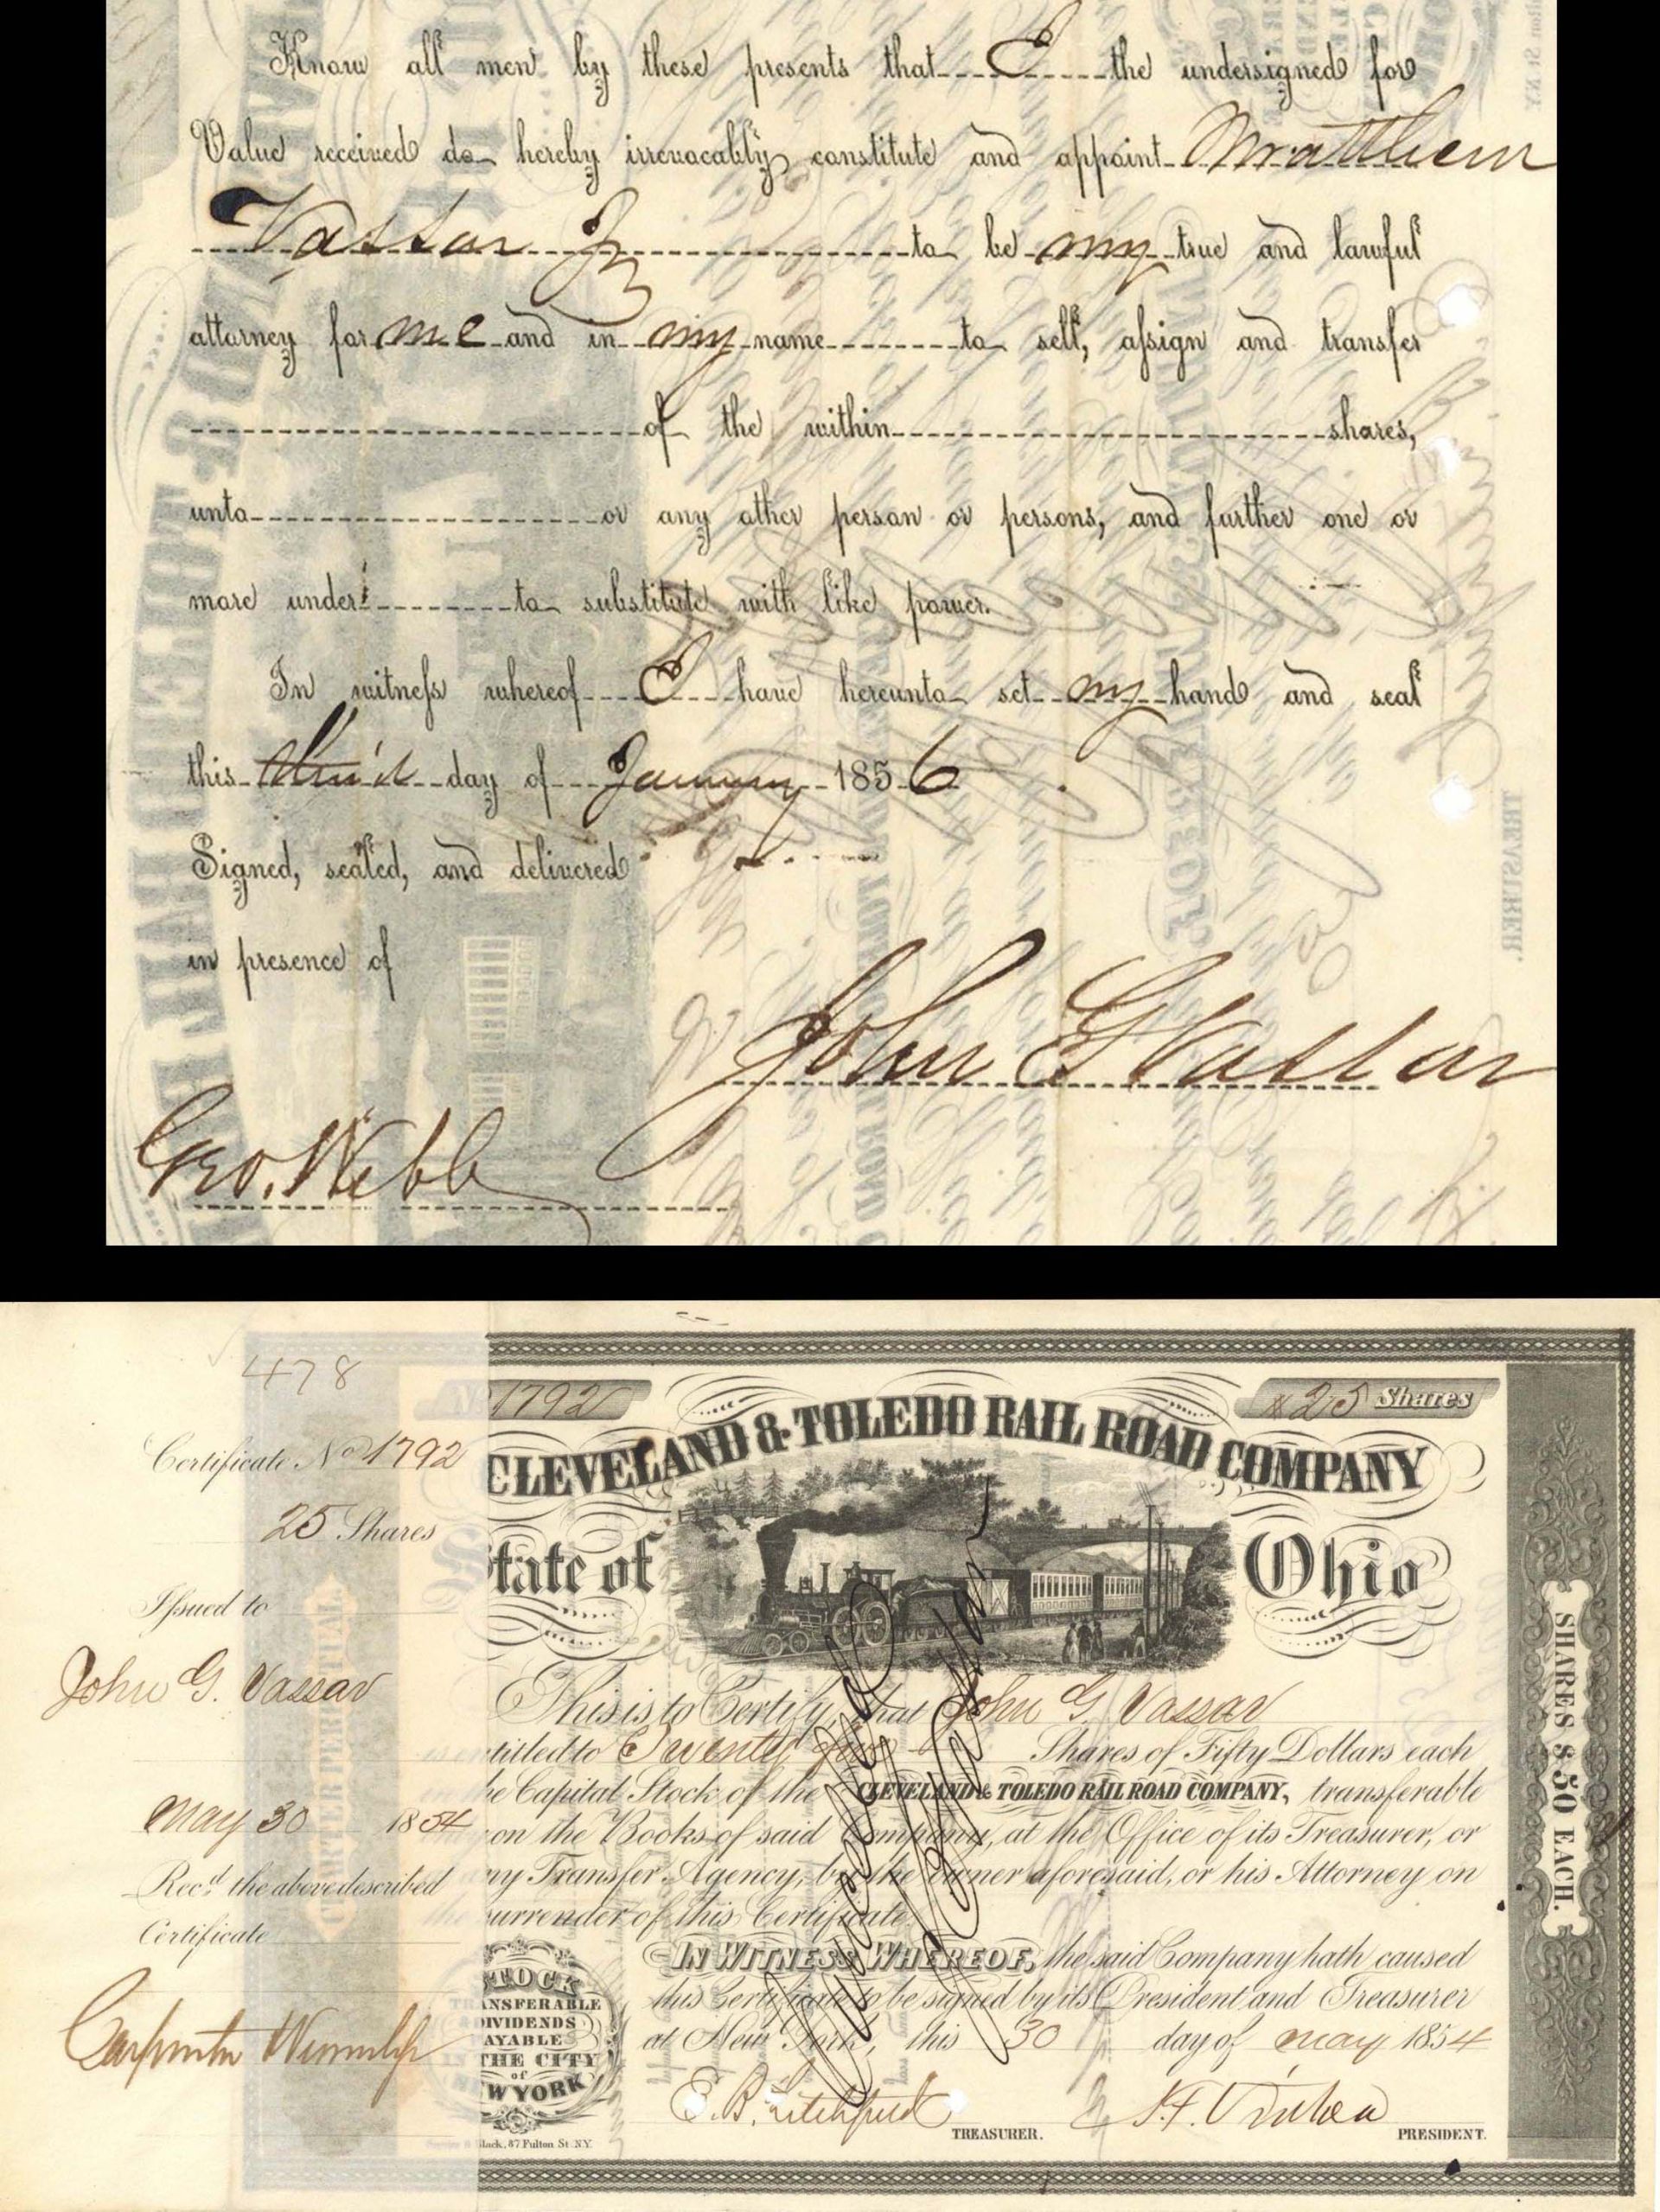 Know all men by these presents that I the undersigned for
Value received do hereby irrevocably constitute and appoint Matthew
Vassar Jr to be my true and lawful
attorney for me and in my name to sell, assign and transfer
of the within shares,
unto or any other person or persons, and further one or
more under to substitute with like power.
In witness whereof I have hereunto set my hand and seal
this third day of January 1856
Signed, sealed, and delivered
in presence of
John G Vassar
Geo. Webb
TREASURER.
478
No 1792
25 Shares
Certificate No 1792
CLEVELAND & TOLEDO RAIL ROAD COMPANY
25 Shares
State of Ohio
Issued to
John G. Vassar
This is to Certify that John G. Vassar
is entitled to Twenty five Shares of Fifty Dollars each
in the Capital Stock of the CLEVELAND & TOLEDO RAIL ROAD COMPANY, transferable
May 30 1854
on the Books of said Company, at the Office of its Treasurer, or
Recd. the above described
any Transfer Agency, by the owner aforesaid, or his Attorney on
Certificate
the surrender of this Certificate.
CHARTER PERPETUAL
Cancelled
IN WITNESS WHEREOF, the said Company hath caused
this Certificate to be signed by its President and Treasurer
at New York, this 30 day of May 1854
STOCK
TRANSFERABLE
& DIVIDENDS
PAYABLE
IN THE CITY
of
NEW YORK
E. B. Litchfield
TREASURER.
PRESIDENT.
Black, 87 Fulton St. N.Y.
SHARES $50 EACH.